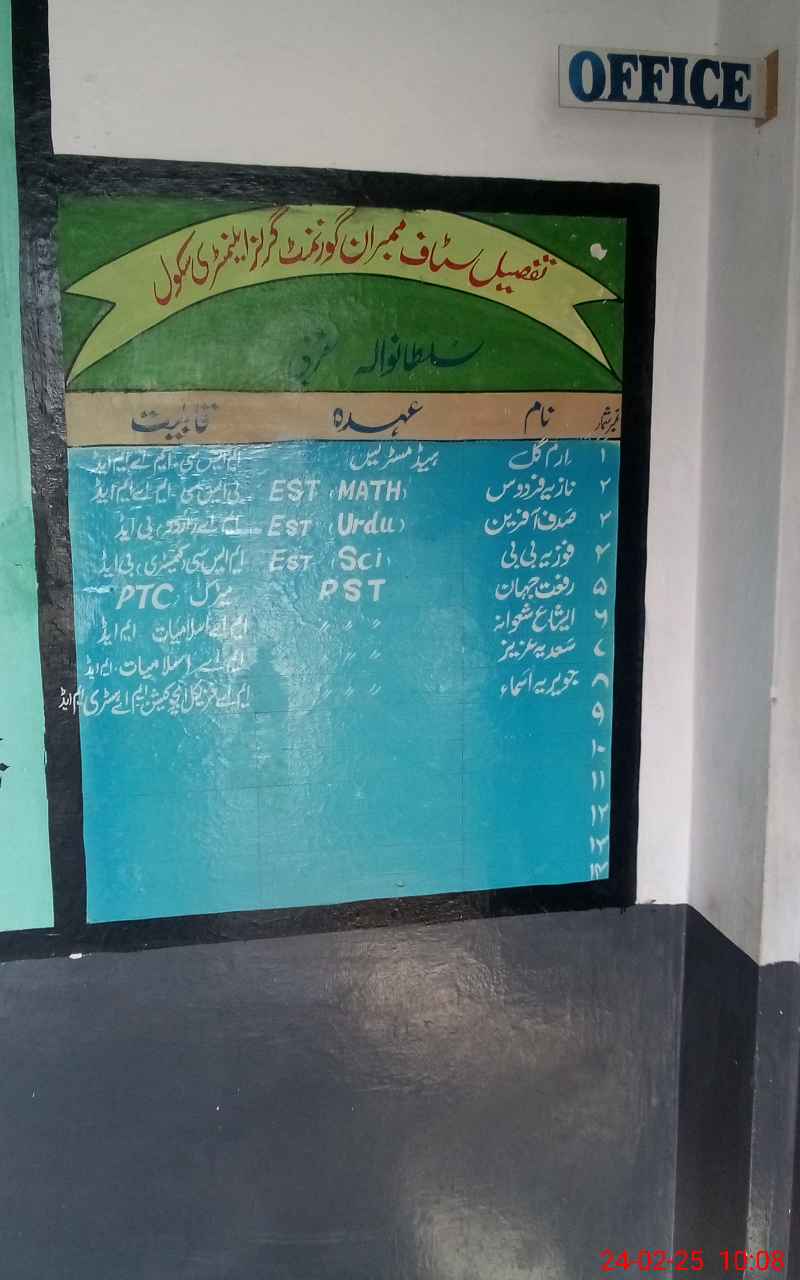 OFFICE
تفصیل سٹاف ممبران گورنمنٹ گرلز ایلیمنٹری سکول
سلطانوالہ غربی
نمبر شمار نام عہدہ قابلیت
۱ ارم گل ہیڈ مسٹریس ایم ایس سی ۔ ایم اے ایم ایڈ
۲ نازیہ فردوس EST (MATH) بی ایس سی ۔ ایم اے ایم ایڈ
۳ صدف آفرین EST (Urdu) ایم اے (اردو) بی ایڈ
۴ فوزیہ بی بی EST (Sci) ایم ایس سی (کیمسٹری) بی ایڈ
۵ رفعت جہان PST میٹرک PTC
۶ ایشاع شعوانہ " " " ایم اے اسلامیات ایم ایڈ
۷ سعدیہ عزیز " " " ایم اے اسلامیات ، ایم ایڈ
۸ جویریہ اسماء " " " ایم اے فزیکل ایجوکیشن ایم اے ہسٹری ایم ایڈ
۹
۱۰
۱۱
۱۲
۱۳
۱۴
24-02-25 10:08